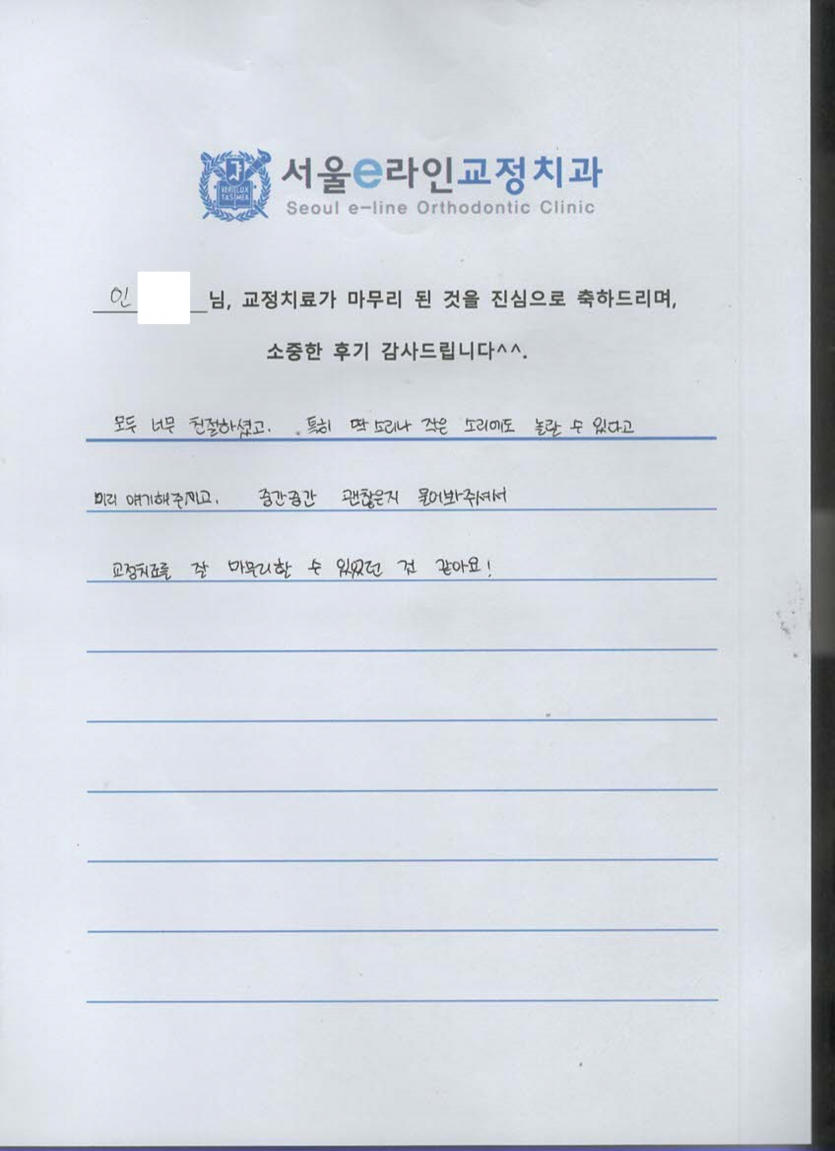 서울e라인교정치과
Seoul e-line Orthodontic Clinic
VERI LUX
TAS MEA
인 님, 교정치료가 마무리 된 것을 진심으로 축하드리며,
소중한 후기 감사드립니다^^.
모두 너무 친절하셨고. 특히 딱 소리나 작은 소리에도 놀랄 수 있다고
미리 얘기해주시고. 중간중간 괜찮은지 물어봐주셔서
교정치료를 잘 마무리할 수 있었던 것 같아요!